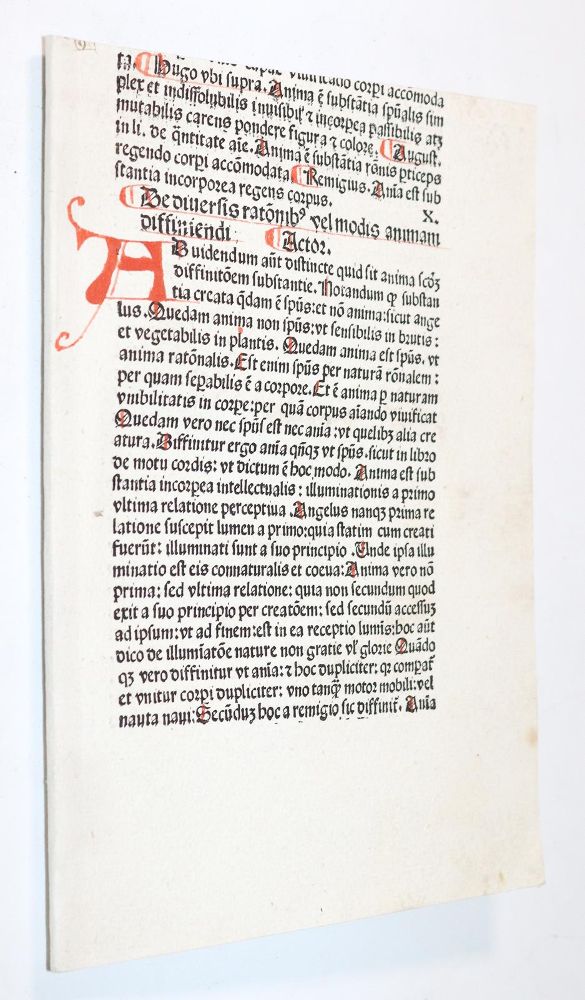 corpi accōmoda
ta. Hugo vbi supra. Anima ē substātia spūalis sim
plex et indissolubilis inuisibil' ⁊ incorpea passibilis atꝫ
mutabilis carens pondere figura ⁊ colore. August.
in li. de q̄ntitate aīe. Anima ē substātia rōnis pticeps
regendo corpi accōmodata Remigius. Aīa est sub
stantia incorporea regens corpus. X.
De diuersis ratōnibꝰ vel modis animam
diffiniendi Actor.
AD uidendum aūt distincte quid sit anima scꝫ
diffinitōem substantie. Notandum ꝙ substan
tia creata q̄dam ē spūs: et nō anima: sicut ange
lus. Quedam anima non spūs: vt sensibilis in brutis:
et vegetabilis in plantis. Quedam anima est spūs. vt
anima ratōnalis. Est enim spūs per naturā rōnalem:
per quam sepabilis ē a corpore. Et ē anima p naturam
vnibilitatis in corpe: per quā corpus aīando viuificat
Quedam vero nec spūs est nec aīa: vt quelibꝫ alia cre
atura. Diffinitur ergo aīa qn̄qꝫ vt spūs. sicut in libro
de motu cordis: vt dictum ē hoc modo. Anima est sub
stantia incorpea intellectualis: illuminationis a primo
vltima relatione perceptiua. Angelus nanqꝫ prima re
latione suscepit lumen a primo: quia statim cum creati
fuerūt: illuminati sunt a suo principio. Unde ipsa illu
minatio est eis connaturalis et coeua: Anima vero nō
prima: sed vltima relatione: quia non secundum quod
exit a suo principio per creatōem: sed secundū accessuꝫ
ad ipsum: vt ad finem: est in ea receptio lumīs: hoc aūt
dico de illumīatōe nature non gratie vl' glorie Quādo
qꝫ vero diffinitur vt aīa: ⁊ hoc dupliciter: qꝛ compat̄
et vnitur corpi dupliciter: vno tanqꝫ motor mobili: vel
nauta naui: Secūduꝫ hoc a remigio sic diffinit̄. Aīa